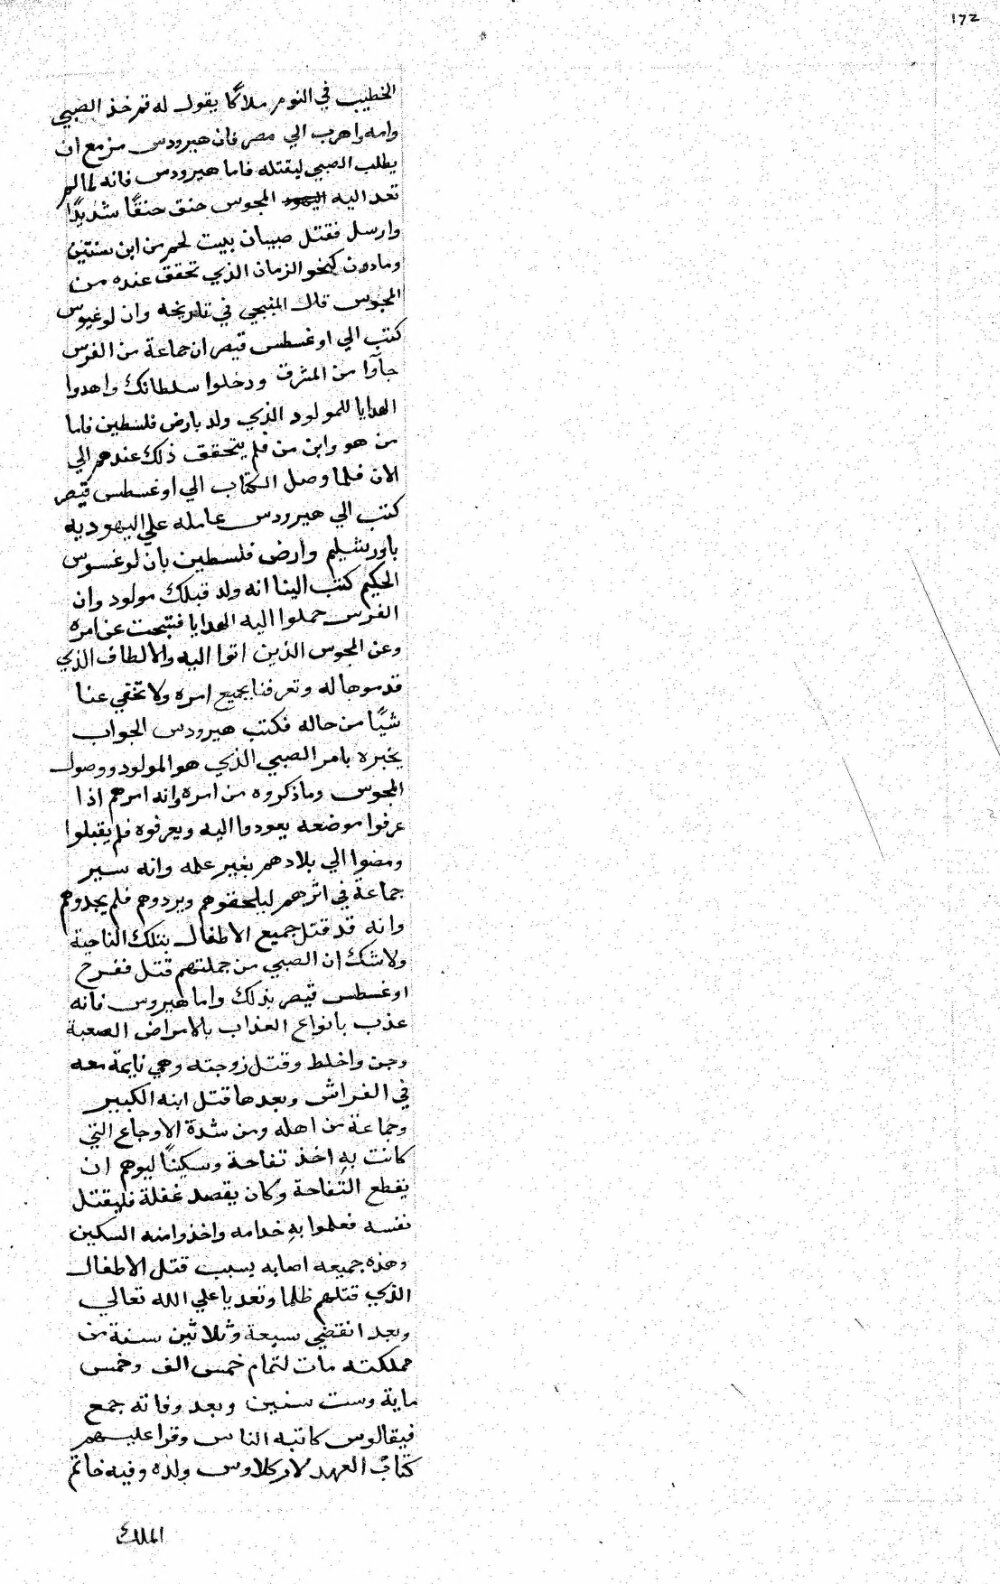 ١٧٢
الخطيب في النوم ملاكًا يقول له قم خذ الصبي
وامه واهرب الي مصر فان هيرودس مزمع ان
يطلب الصبي ليقتله فاما هيرودس فانه لمالم
تعد اليه اليهود المجوس حنق حنقًا شديدًا
وارسل فقتل صبيان بيت لحم من ابن سنتين
ومادون كنحو الزمان الذي تحقق عنده من
المجوس قال المنبجي في تاريخه وان لوغيوس
كتب الي اوغسطس قيصر ان جماعة من الفرس
جآوا من المشرق ودخلوا سلطانك واهدوا
الهدايا للمولود الذي ولد بارض فلسطين فاما
من هو وابن من فلم يتحقق ذلك عندهم الي
الان فلما وصل الكتاب الي اوغسطس قيصر
كتب الي هيرودس عامله علي اليهوديه
باورشليم وارض فلسطين بان لوغسوس
الحكيم كتب الينا انه ولد قبلك مولود وان
الفرس حملوا اليه الهدايا فتبحث عن امره
وعن المجوس الذين اتوا اليه والالطاف الذي
قدموها له وتعرفنا بجميع امره ولا تخفي عنا
شيًا من حاله فكتب هيرودس الجواب
يخبره بامر الصبي الذي هو المولود ووصول
المجوس وماذكروه من امره وانه امرهم اذا
عرفوا موضعه يعودوا اليه ويعرفوه فلم يقبلوا
ومضوا الي بلادهم بغير علمه وانه سير
جماعة في اثرهم ليلحقوهم ويردوهم فلم يجدوهم
وانه قد قتل جميع الاطفال بتلك الناحية
ولاشك ان الصبي من جملتهم قتل ففرح
اوغسطس قيصر بذلك واما هيروس فانه
عذب بانواع العذاب بالامراض الصعبة
وجن واخلط وقتل زوجته وهي نايمة معه
في الفراش وبعدها قتل ابنه الكبير
وجماعة من اهله ومن شدة الاوجاع التي
كانت بهِ اخذ تفاحة وسكينًا ليوهم ان
يقطع التفاحة وكان يقصد غفلة فليقتل
نفسه فعلموا بهِ خدامه واخذوا منه السكين
وهذه جميعه اصابه بسبب قتل الاطفال
الذي قتلهم ظلما وتعديا علي الله تعالي
وبعد انقضي سبعة وثلاثين سنة من
مملكته مات لتمام خمس الف وخمس
ماية وست سنين وبعد وفاته جمع
فيقالوس كاتبه الناس وقرا عليهم
كتاب العهد لاركلاوس ولده وفيه خاتم
الملك